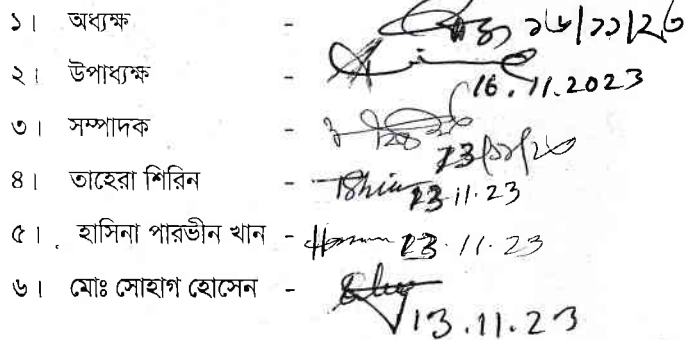 ১। অধ্যক্ষ - ১৬/১১/২৩
২। উপাধ্যক্ষ - 16.11.2023
৩। সম্পাদক - 13/১১/২৩
৪। তাহেরা শিরিন - 13.11.23
৫। হাসিনা পারভীন খান - 13.11.23
৬। মোঃ সোহাগ হোসেন - 13.11.23